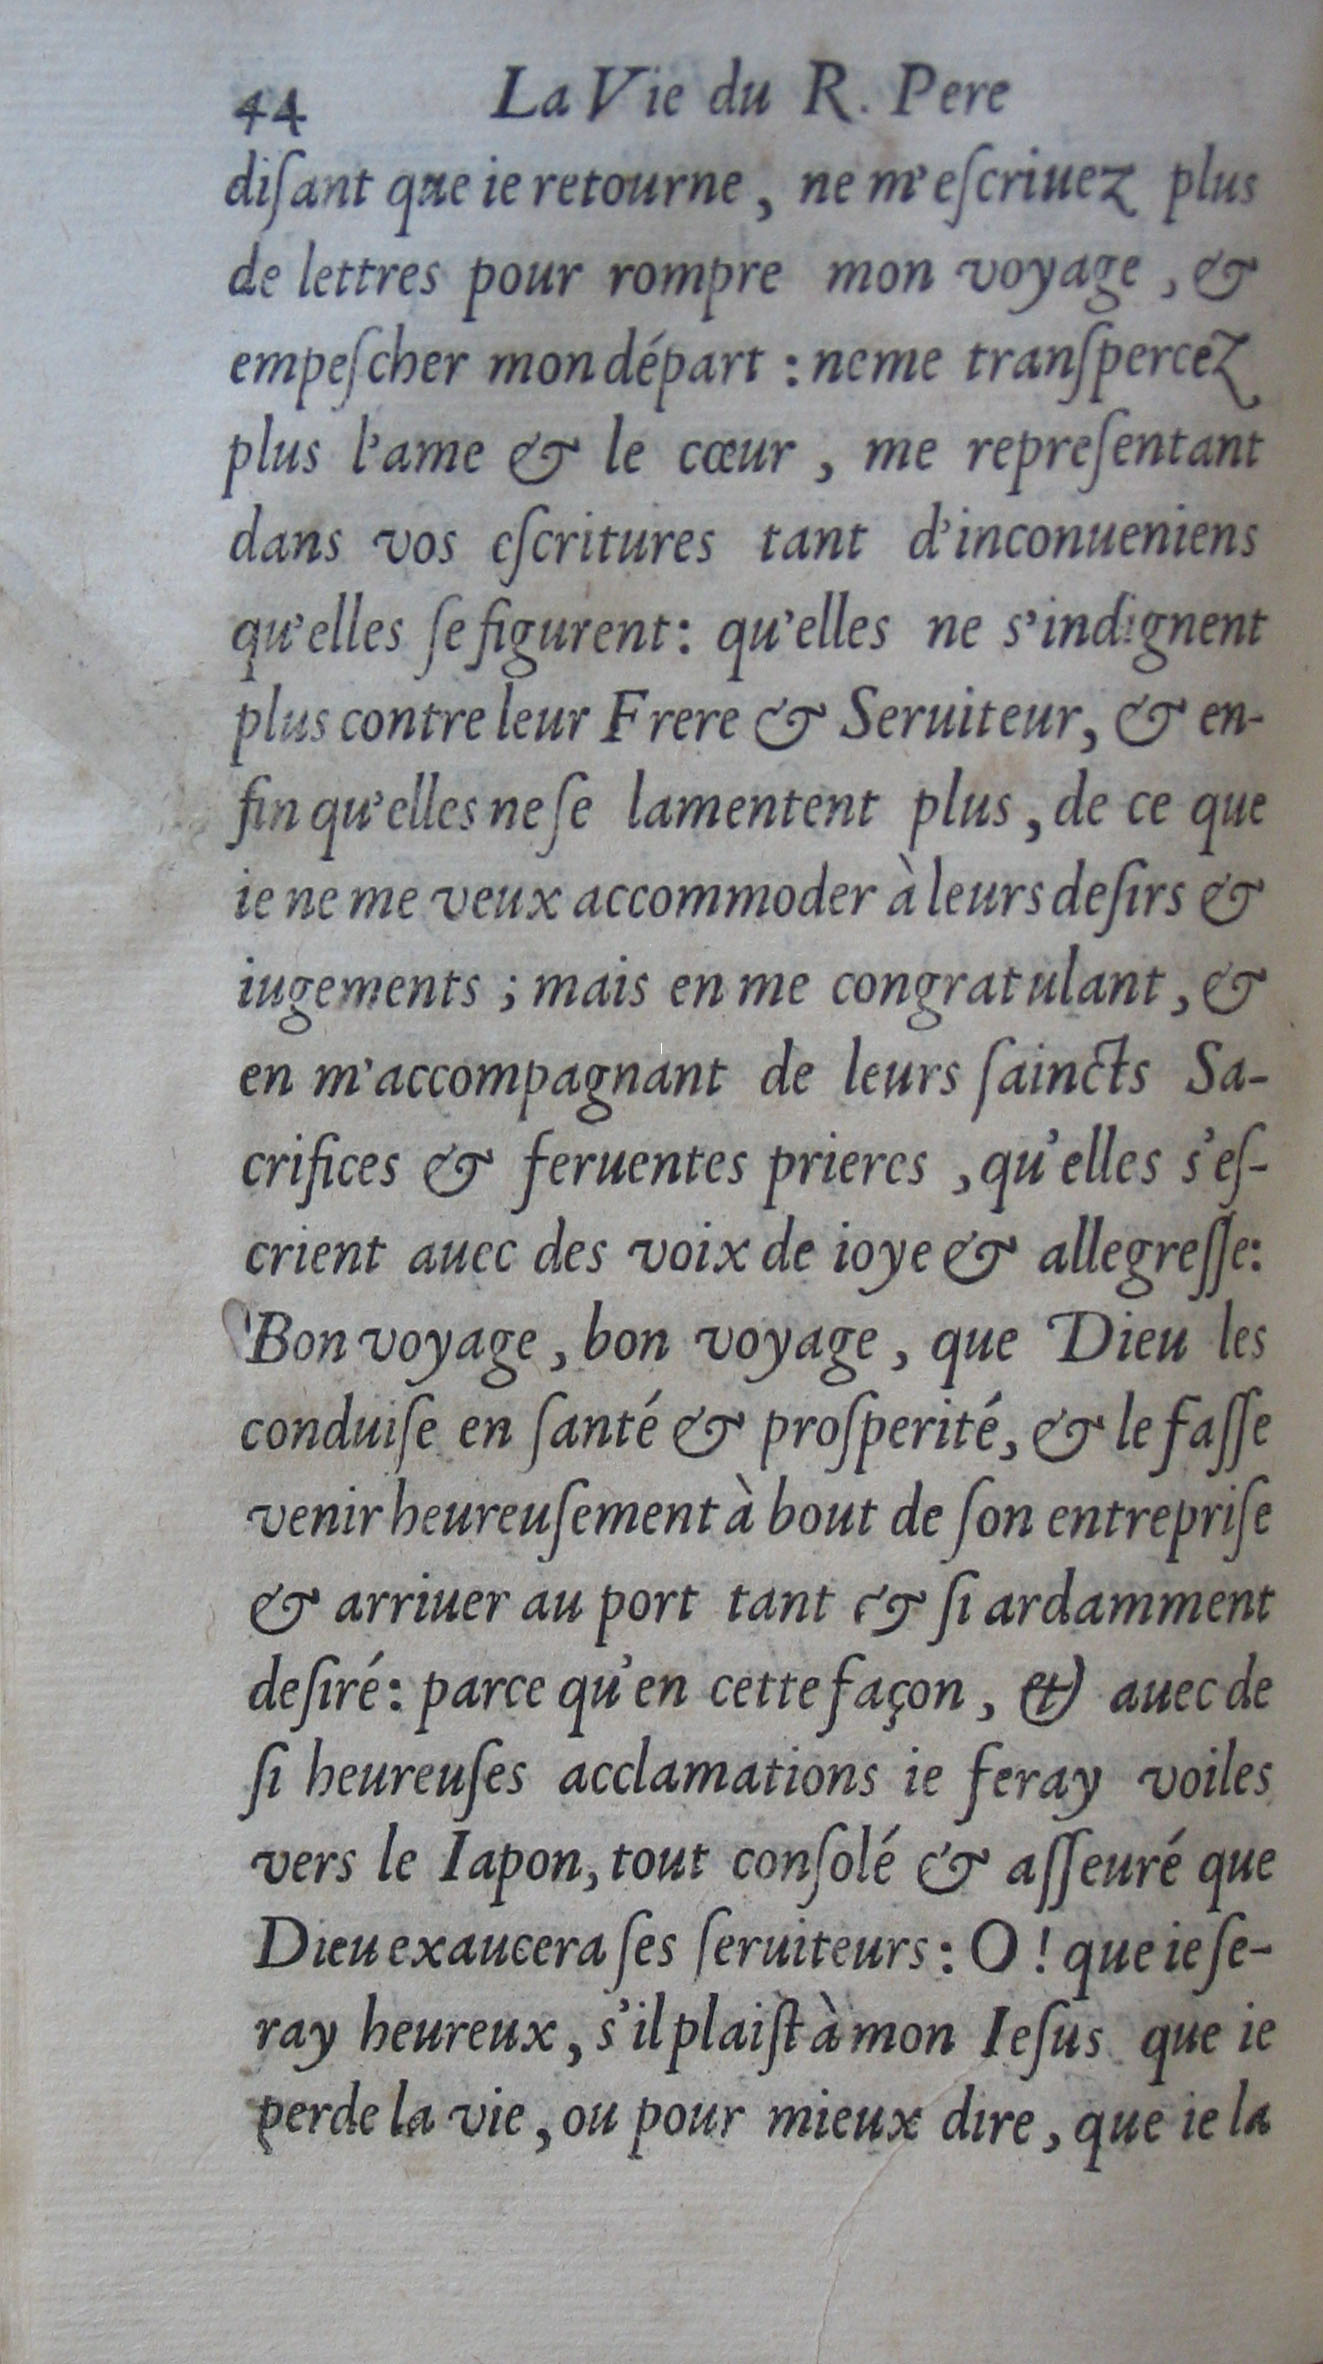 44 La Vie du R. Pere
diſant que ie retourne, ne m'eſcriuez plus
de lettres pour rompre mon voyage, &
empeſcher mon départ : ne me tranſpercez
plus l'ame & le cœur, me repreſentant
dans vos eſcritures tant d'inconueniens
qu'elles ſe figurent : qu'elles ne s'indignent
plus contre leur Frere & Seruiteur, & en-
fin qu'elles ne ſe lamentent plus, de ce que
ie ne me veux accommoder à leurs deſirs &
iugements ; mais en me congratulant, &
en m'accompagnant de leurs ſaincts Sa-
crifices & feruentes prieres, qu'elles s'eſ-
crient auec des voix de ioye & allegreſſe :
Bon voyage, bon voyage, que Dieu les
conduiſe en ſanté & proſperité, & le faſſe
venir heureuſement à bout de ſon entrepriſe
& arriuer au port tant & ſi ardamment
deſiré : parce qu'en cette façon, & auec de
ſi heureuſes acclamations ie feray voiles
vers le Iapon, tout conſolé & aſſeuré que
Dieu exaucera ſes ſeruiteurs : O ! que ie ſe-
ray heureux, s'il plaiſt à mon Ieſus que ie
perde la vie, ou pour mieux dire, que ie la